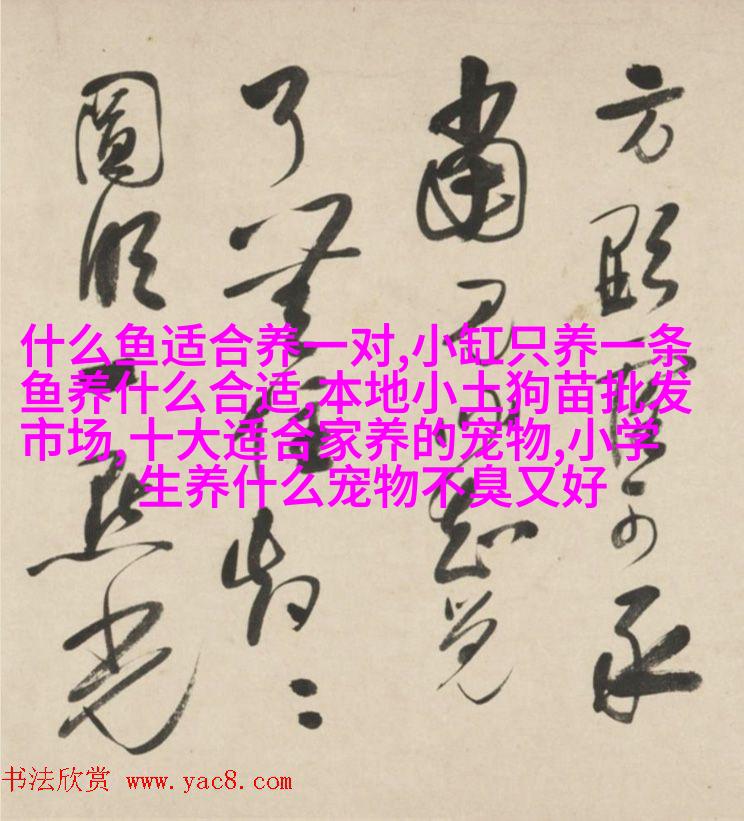 什么鱼适合养一对,小缸只养一条
鱼养什么合适,本地小土狗苗批发
市场,十大适合家养的宠物,小学
生养什么宠物不臭又好
方
見聞知覺
了無
圓明一點光
书法欣赏 www.yac8.com